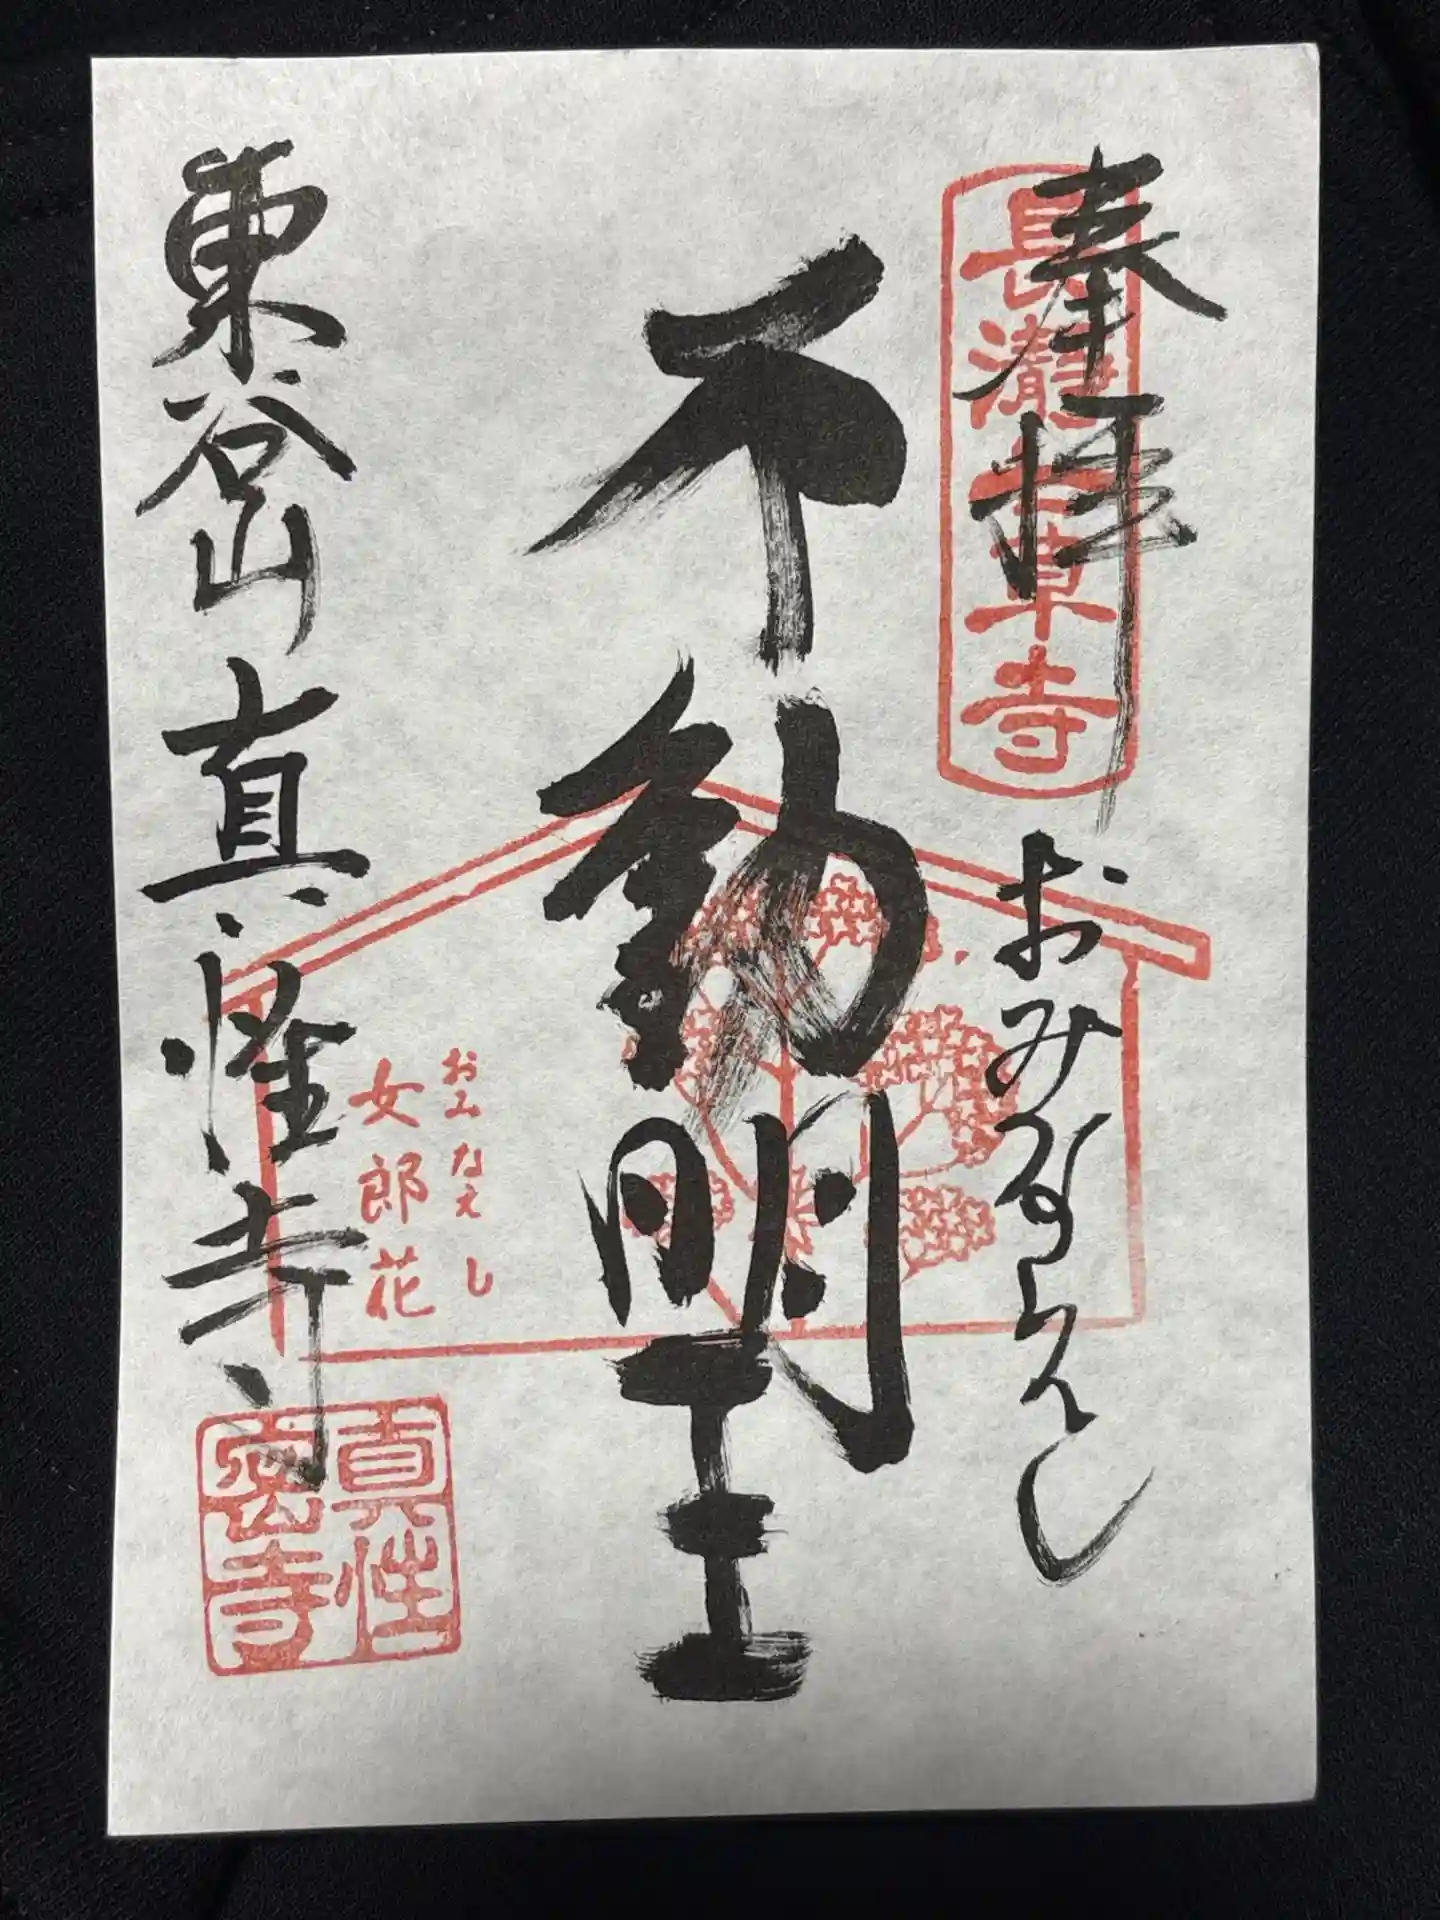 奉拝
長瀞七草寺
おみなえし
不動明王
おみなえし
女郎花
東谷山 真性寺
真性
密寺